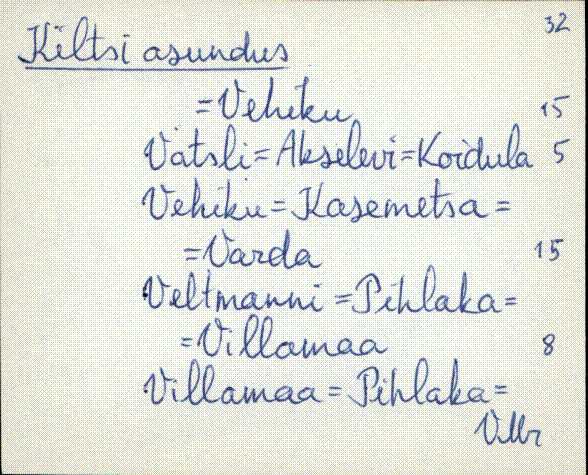 32
Kiltsi asundus
=Vehiku 15
Vätsli=Akselevi=Koidula 5
Vehiku=Kasemetsa=
=Varda 15
Veltmanni=Pihlaka=
=Villamaa 8
Villamaa=Pihlaka=